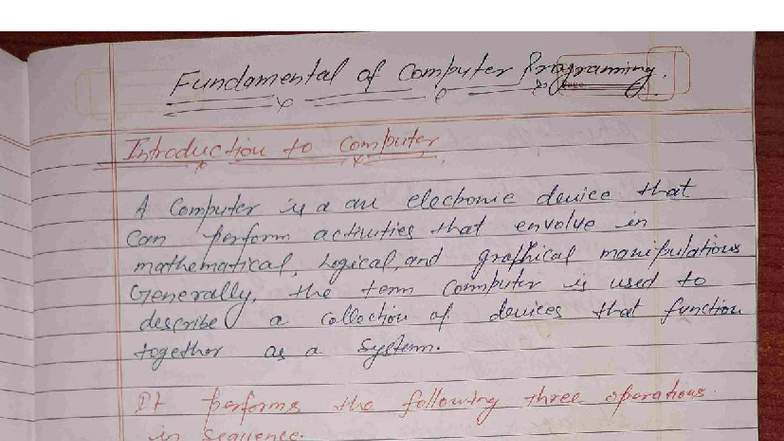 Fundamental of Computer Programing.
Introduction to Computer.
A Computer is a an electronic device that
can perform activities that envolve in
mathematical, Logical, and graphical manipulations
Generally, the term Computer is used to
describe a collection of devices that function
together as a System.
It performs the following three operations
in Sequence.